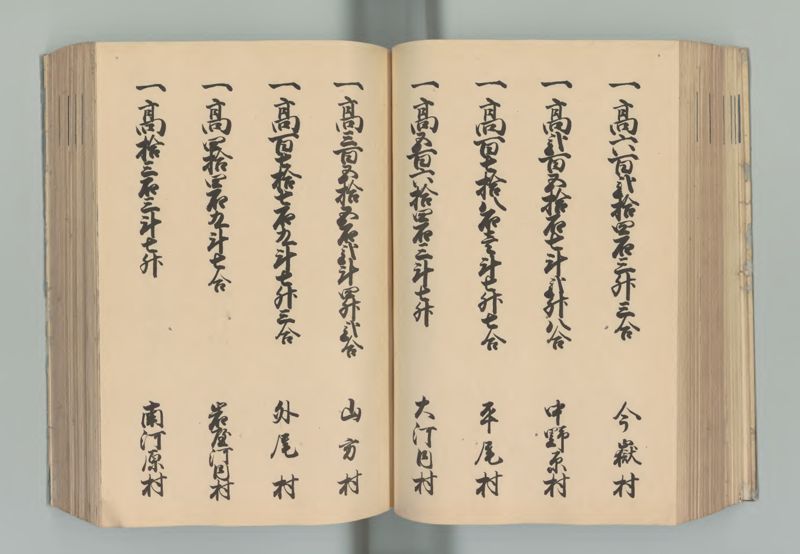 一高六百弐拾四石三升三合　今嶽村
一高弐百五拾石七斗弐升八合　中野原村
一高百七拾八石三斗七升七合　平尾村
一高五百六拾四石三斗七升　大河内村
一高三百五拾五石弐斗四升弐合　山方村
一高百七拾七石九斗七升三合　外尾村
一高四拾四石九斗七合　岩屋河内村
一高拾三石三斗七升　南河原村